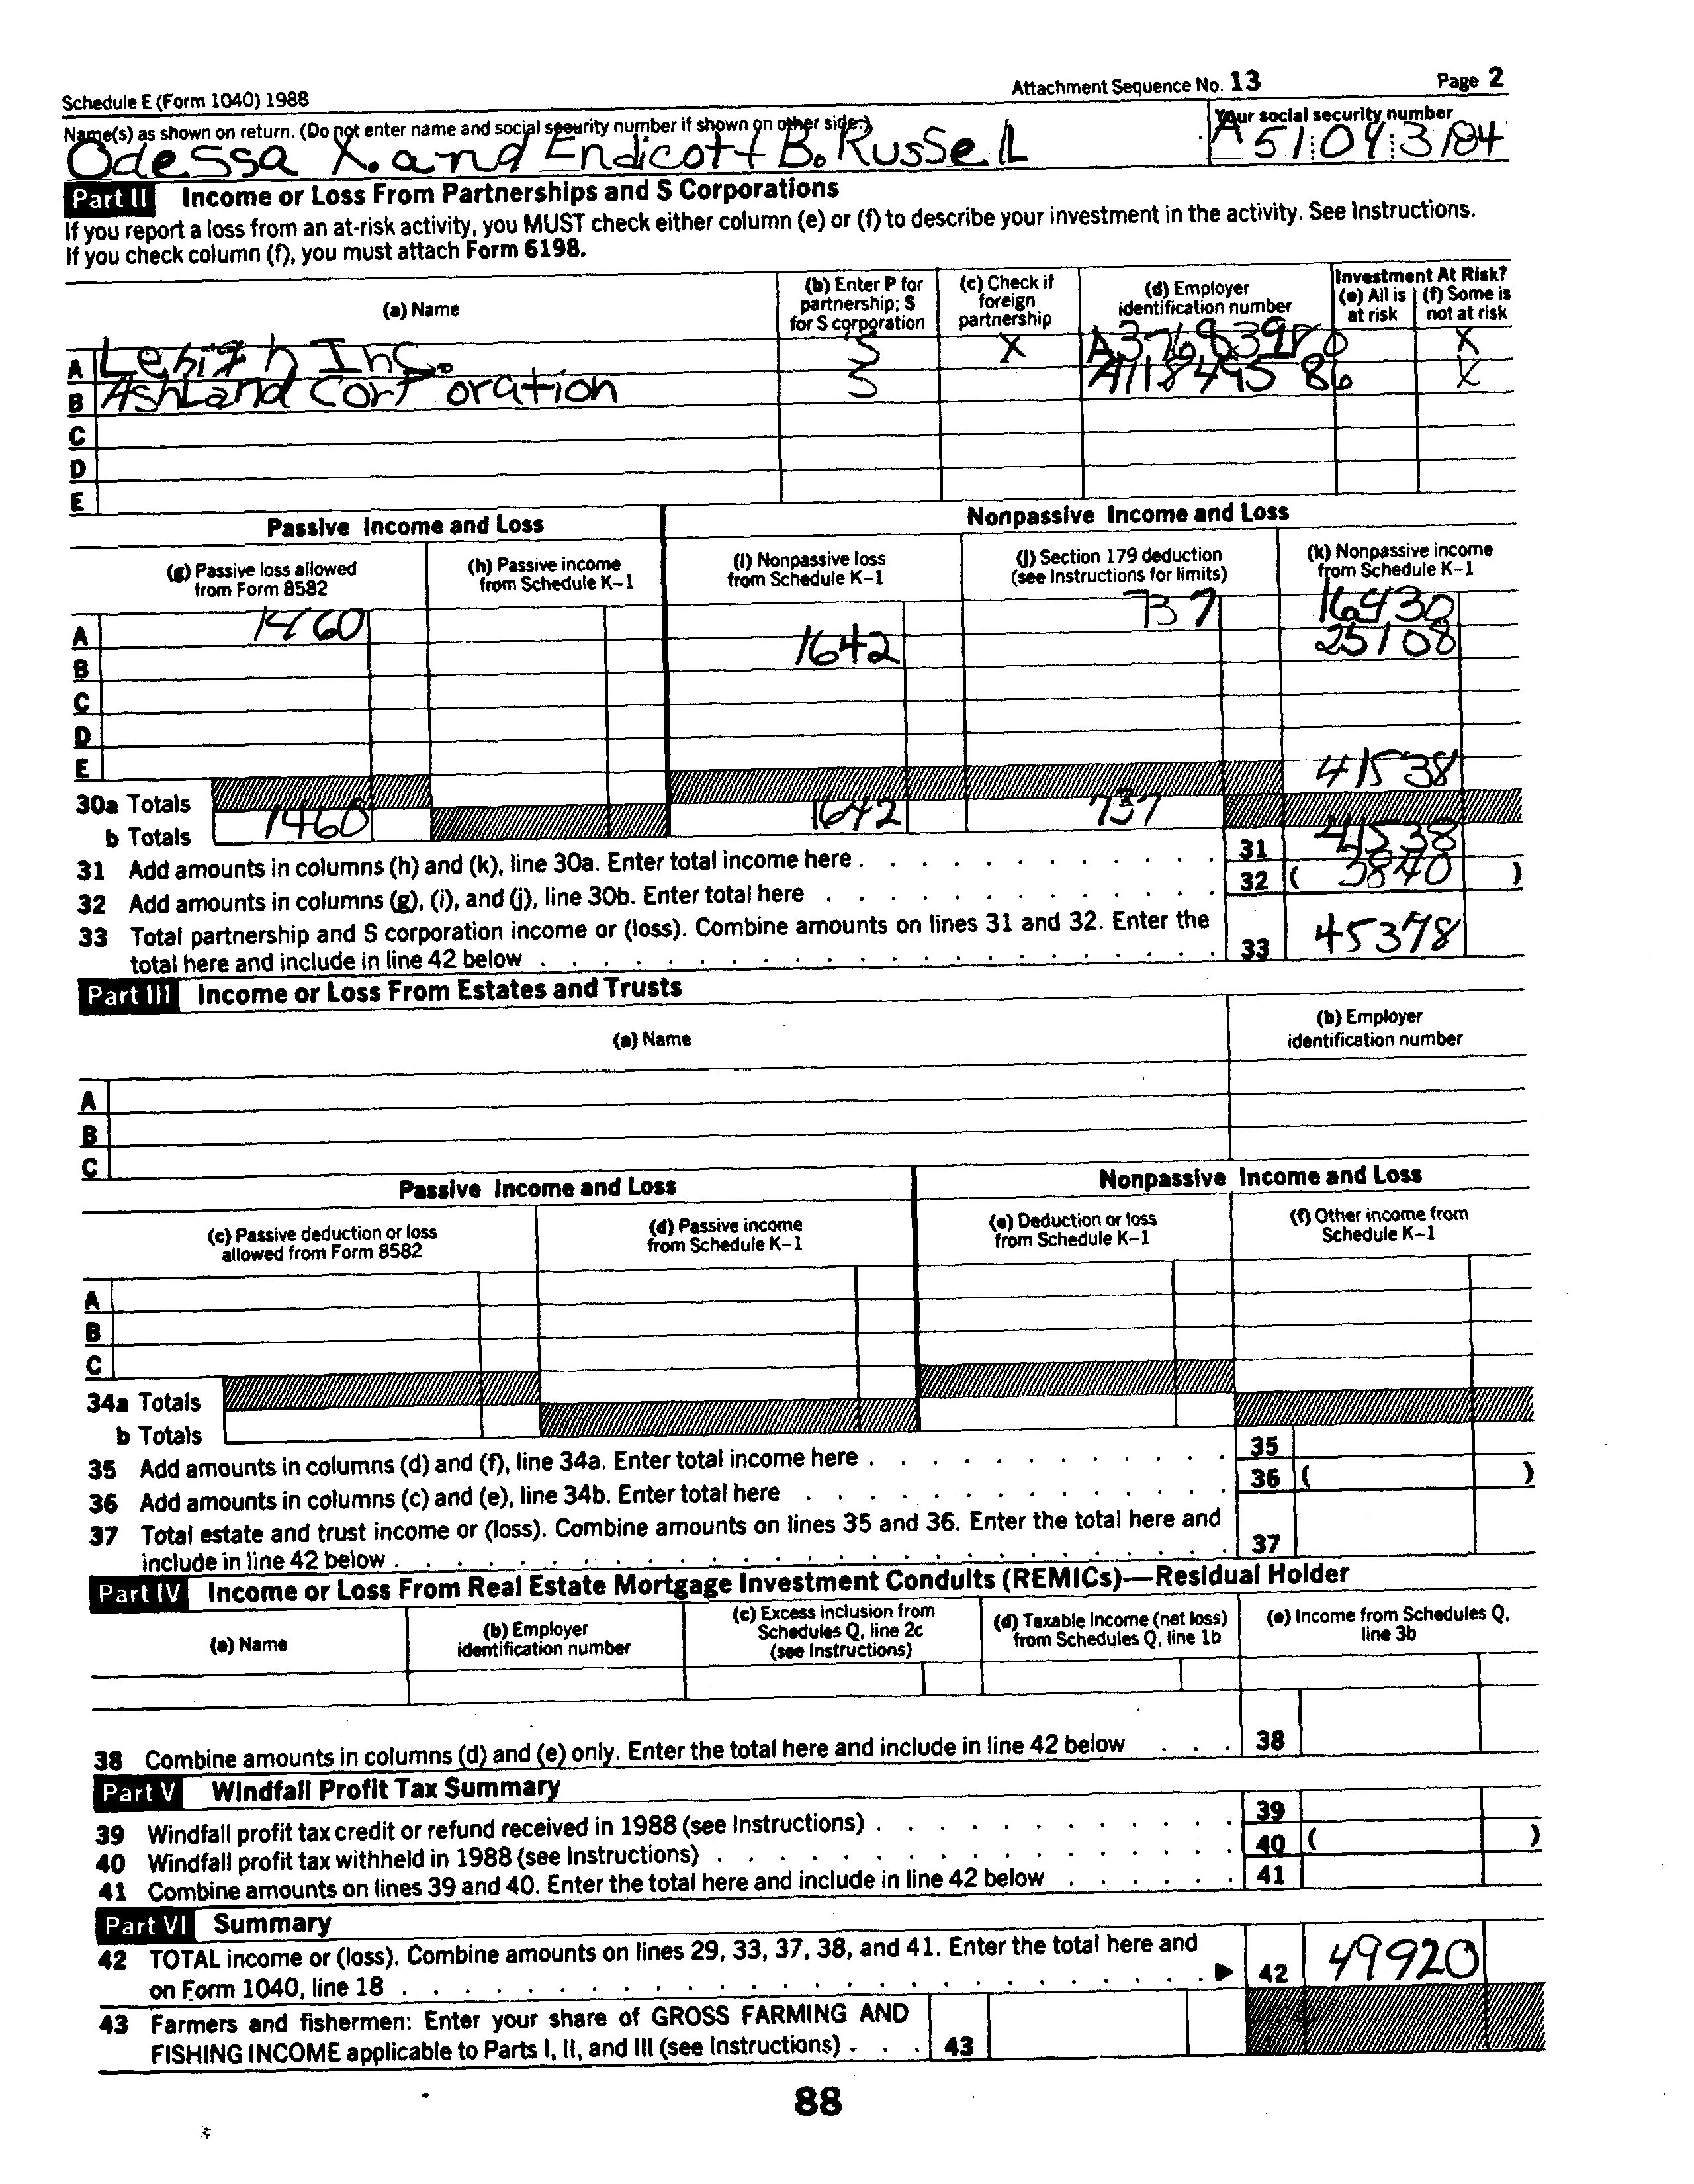 Schedule E (Form 1040) 1988 Attachment Sequence No. 13 Page 2
Name(s) as shown on return. (Do not enter name and social security number if shown on other side.) Your social security number
Odessa X. and Endicott B. Russell A 51 09 3184
Part II Income or Loss From Partnerships and S Corporations
If you report a loss from an at-risk activity, you MUST check either column (e) or (f) to describe your investment in the activity. See Instructions.
If you check column (f), you must attach Form 6198.
(a) Name (b) Enter P for partnership; S for S corporation (c) Check if foreign partnership (d) Employer identification number Investment At Risk? (e) All is at risk (f) Some is not at risk
A Inc. S X X
B Ashland Corporation S A11849586 X
C
D
E
Passive Income and Loss Nonpassive Income and Loss
(g) Passive loss allowed from Form 8582 (h) Passive income from Schedule K-1 (i) Nonpassive loss from Schedule K-1 (j) Section 179 deduction (see Instructions for limits) (k) Nonpassive income from Schedule K-1
A 1460 737 16430
B 1642 25108
C
D
E
30a Totals 41538
b Totals 1460 1642 737
31 Add amounts in columns (h) and (k), line 30a. Enter total income here 31 41538
32 Add amounts in columns (g), (i), and (j), line 30b. Enter total here 32 ( 3840 )
33 Total partnership and S corporation income or (loss). Combine amounts on lines 31 and 32. Enter the
total here and include in line 42 below 33 45378
Part III Income or Loss From Estates and Trusts
(a) Name (b) Employer identification number
A
B
C
Passive Income and Loss Nonpassive Income and Loss
(c) Passive deduction or loss allowed from Form 8582 (d) Passive income from Schedule K-1 (e) Deduction or loss from Schedule K-1 (f) Other income from Schedule K-1
A
B
C
34a Totals
b Totals
35 Add amounts in columns (d) and (f), line 34a. Enter total income here 35
36 Add amounts in columns (c) and (e), line 34b. Enter total here 36 ( )
37 Total estate and trust income or (loss). Combine amounts on lines 35 and 36. Enter the total here and
include in line 42 below 37
Part IV Income or Loss From Real Estate Mortgage Investment Conduits (REMICs)—Residual Holder
(a) Name (b) Employer identification number (c) Excess inclusion from Schedules Q, line 2c (see Instructions) (d) Taxable income (net loss) from Schedules Q, line 1b (e) Income from Schedules Q, line 3b
38 Combine amounts in columns (d) and (e) only. Enter the total here and include in line 42 below 38
Part V Windfall Profit Tax Summary
39 Windfall profit tax credit or refund received in 1988 (see Instructions) 39
40 Windfall profit tax withheld in 1988 (see Instructions) 40 ( )
41 Combine amounts on lines 39 and 40. Enter the total here and include in line 42 below 41
Part VI Summary
42 TOTAL income or (loss). Combine amounts on lines 29, 33, 37, 38, and 41. Enter the total here and
on Form 1040, line 18 42 49920
43 Farmers and fishermen: Enter your share of GROSS FARMING AND
FISHING INCOME applicable to Parts I, II, and III (see Instructions) 43
88